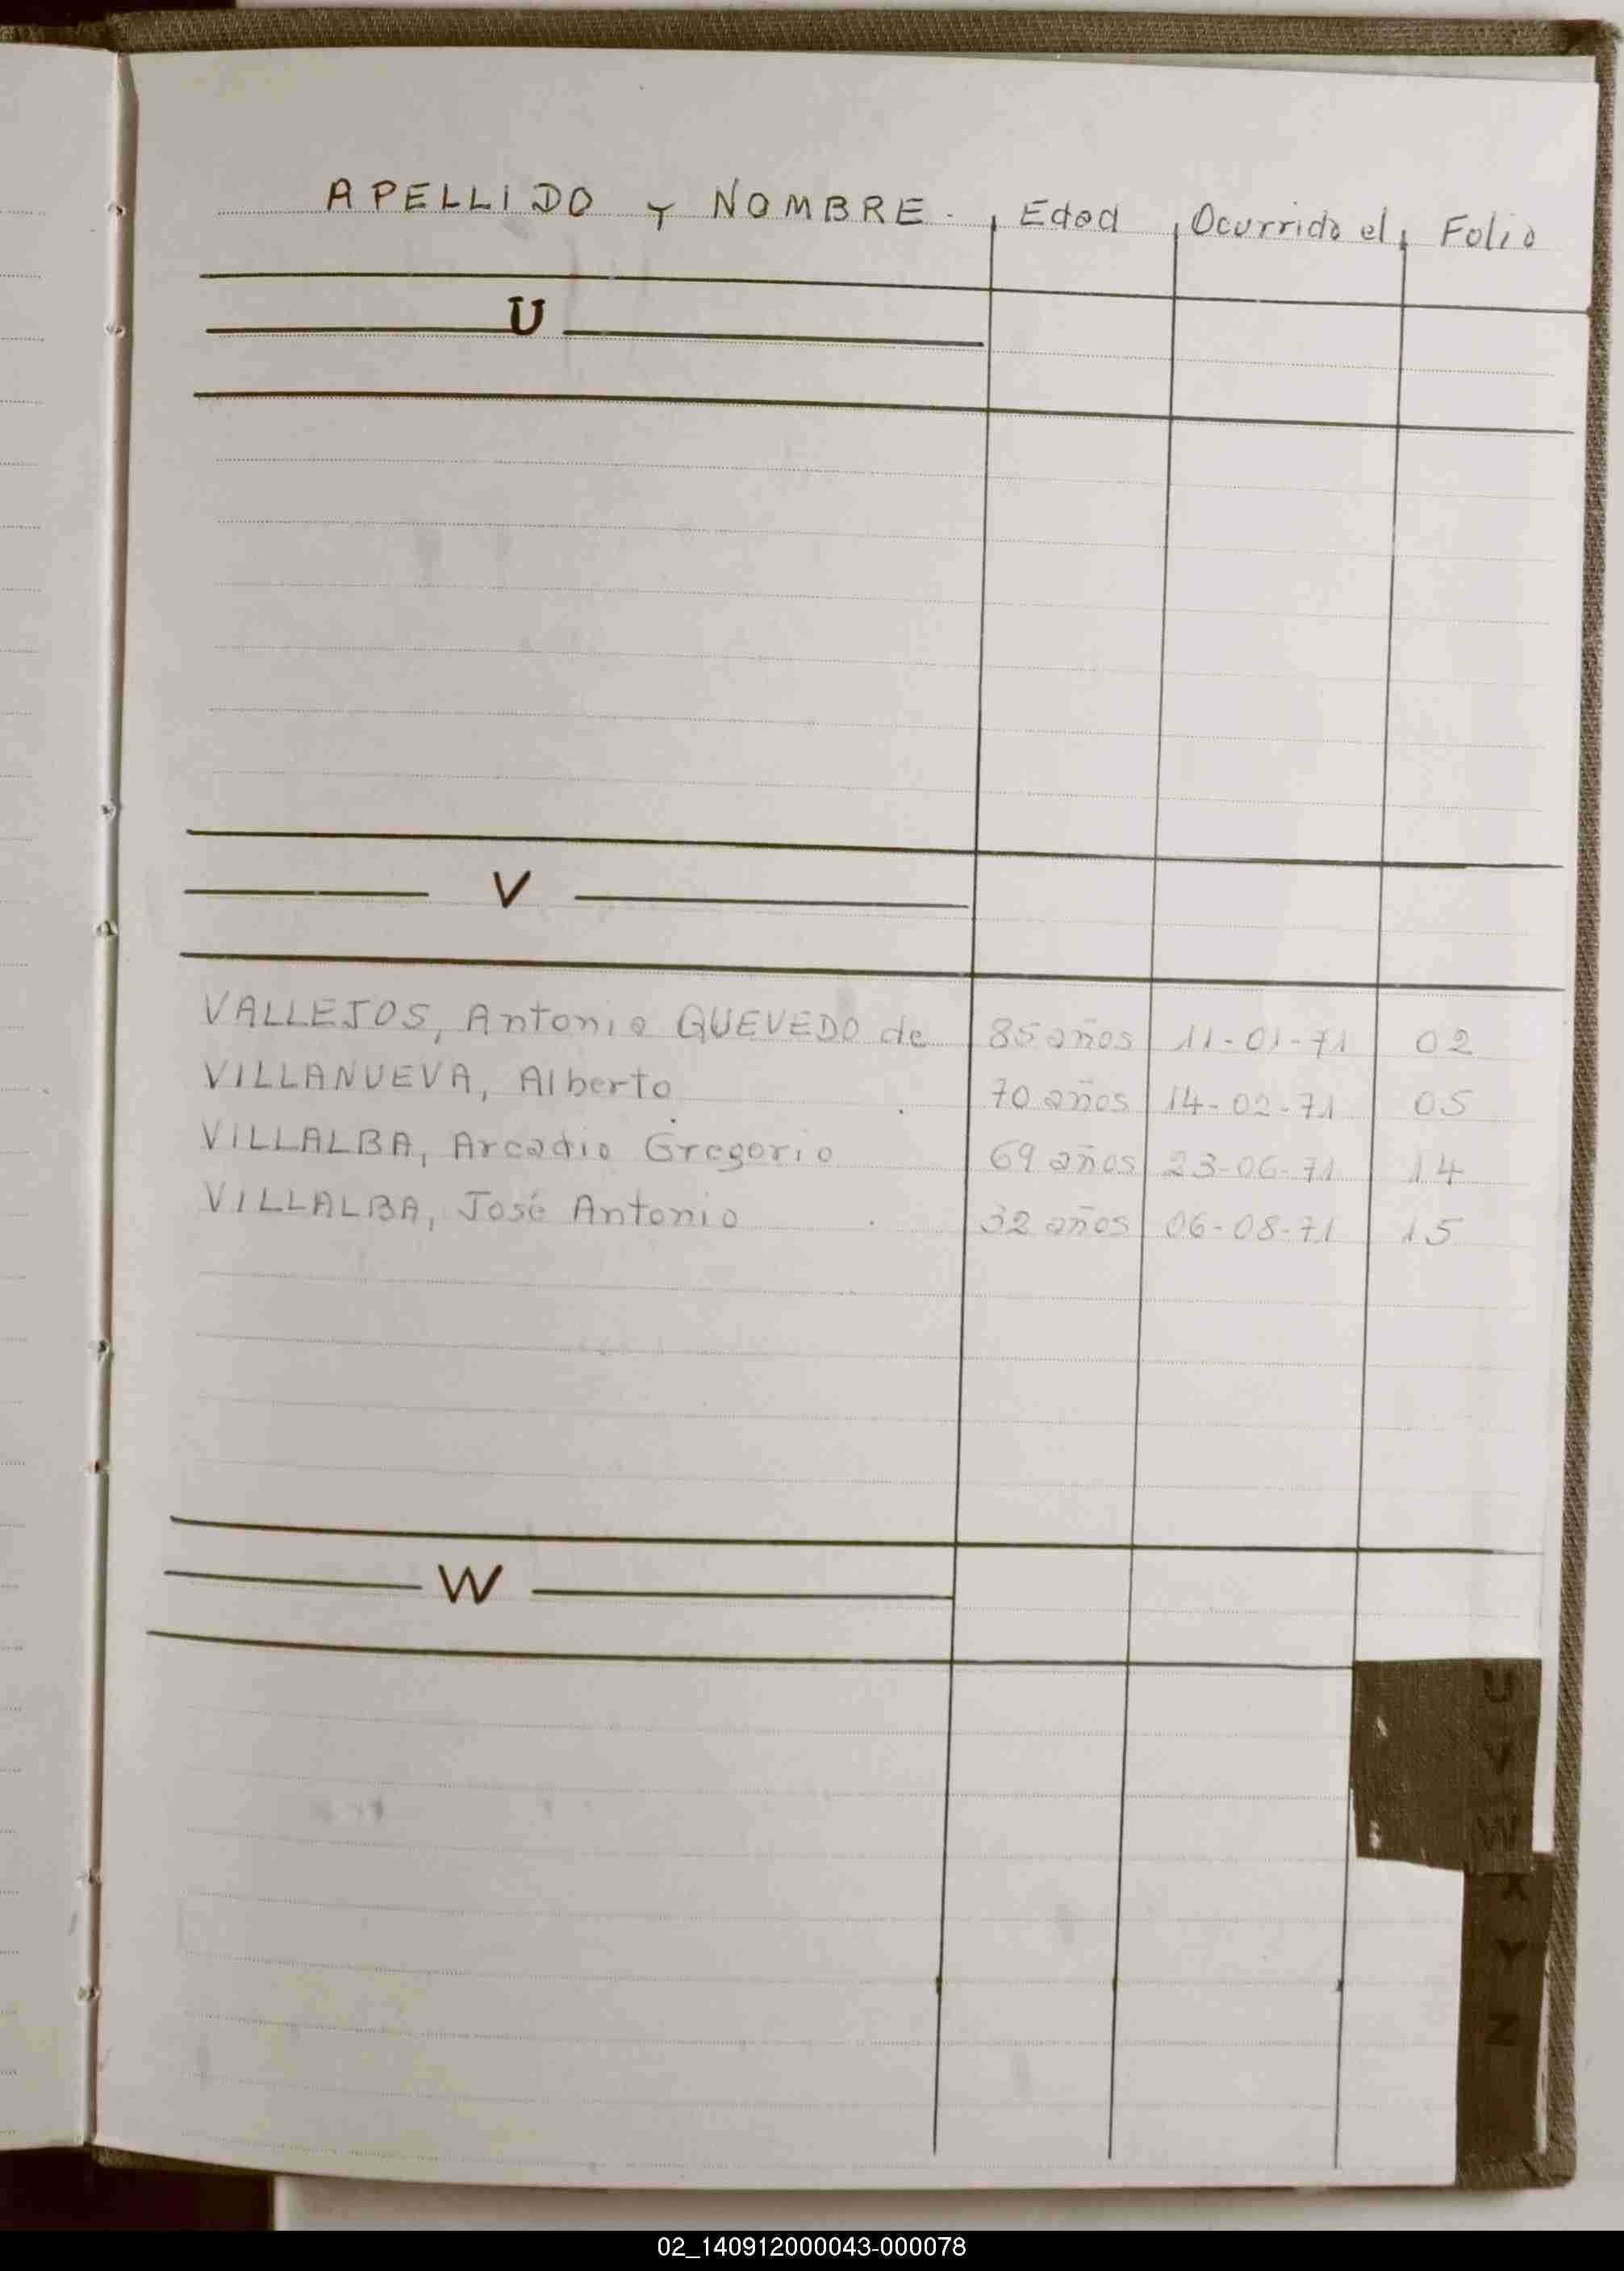 APELLIDO y NOMBRE. Edad Ocurrido el, Folio
U
V
VALLEJOS, Antonia QUEVEDO de 85 años 11-01-71 02
VILLANUEVA, Alberto 70 años 14-02-71 05
VILLALBA, Arcadio Gregorio 69 años 23-06-71 14
VILLALBA, José Antonio 32 años 06-08-71 15
W
U
V
W
X
Y
Z
02_140912000043-000078